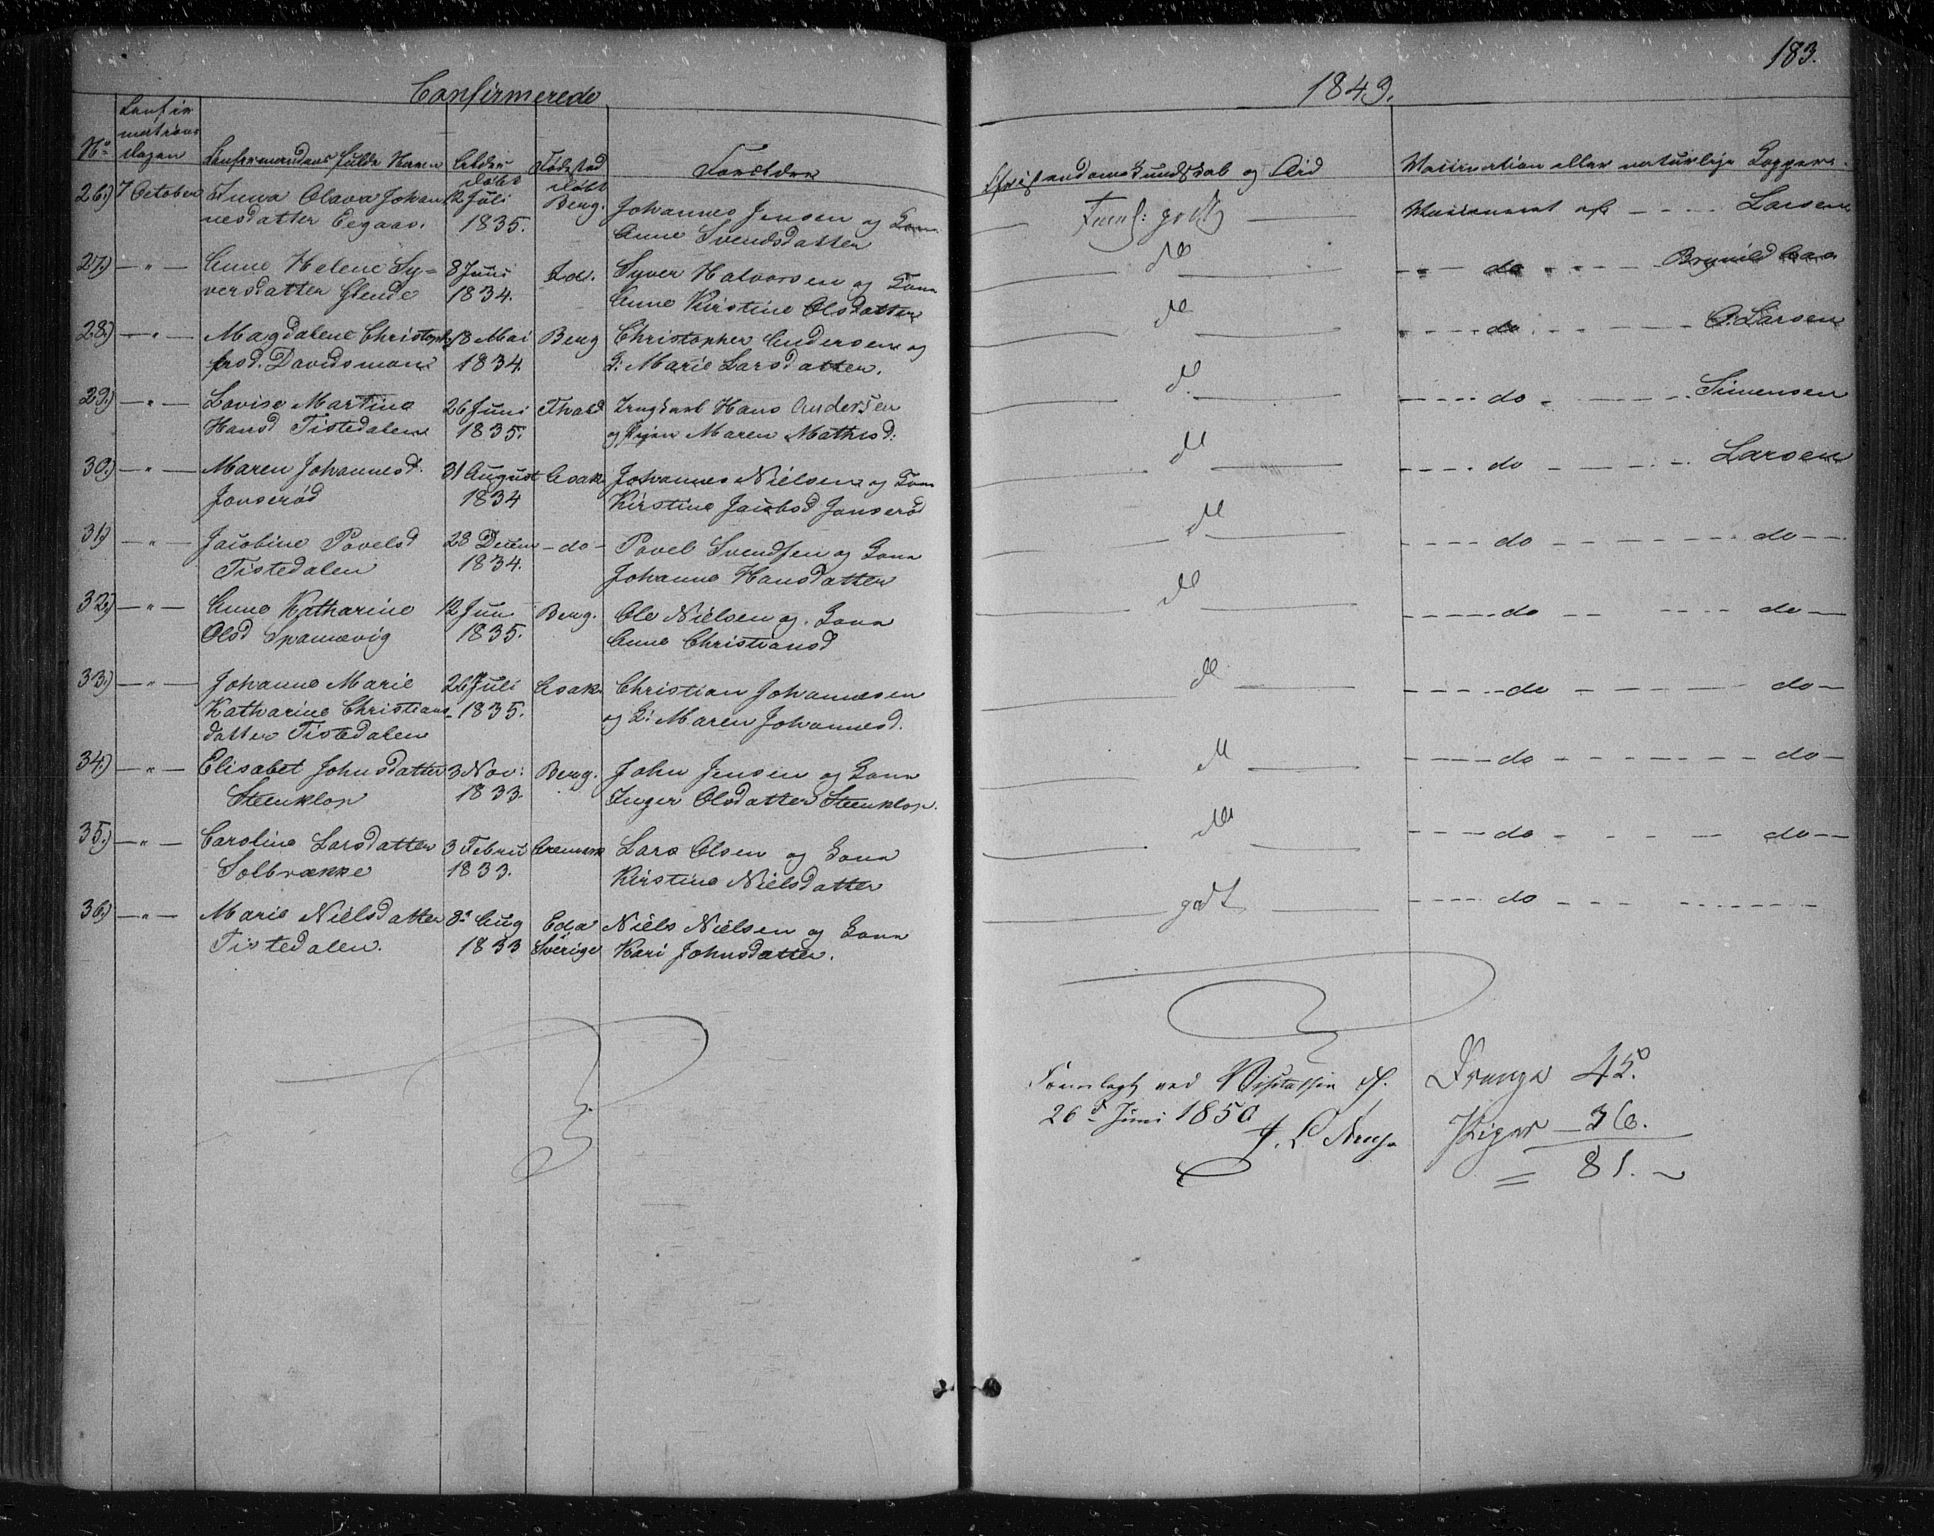 183.
Confirmerede
1849.
No
Confir
mations
dagen
Confirmandens fulde Navn
Alder
døbt
Fødested
døbt
Forældre
Christendomskundskab og Flid
Vaccination eller naturlige Kopper
26.) 7 October Anna Olava Johan 12 Juli Berg. Johannes Jensen og Kone Vaccineret af - - - - Larsen
nesdatter Eegaas. 1835. Anne Svendsdatter
27.) — " — Anne Helene Sy= 8 Juni Id. Syver Halvorsen og Kone do - - - do - - -
versdatter Glende 1834. Anne Kirstine Olsdatter
28.) — " — Magdalene Christoph 13 Mai Berg Christopher Andersen og do - - - do - - - O. Larsen
frsd. Davidsmon 1834. K: Marie Larsdatter.
29.) — " — Lovise Martine 26 Juni Hans Andersen do - - - do - - - Simensen
Hansd Tistedalen 1835. og Pigen Maren Mathisd:
30.) — " — Maren Johannesd. 31 August Asak Johannes Nielsen og Kone do - - - do - - - Larsen
Jonserød 1834 Kirstine Jacobsd Jonserød
31.) — " — Jacobine Povelsd 28 Decem - do - Povel Svendsen og Kone do - - - do - - - do -
Tistedalen 1834. Johanne Hansdatter
32.) — " — Anne Katharine 12 Jun Berg. Ole Nielsen og Kone do - - - do - - - do -
Olsd Sponvig 1835. Anne Christiansd
33.) — " — Johanne Marie 26 Juli Asak Christian Johannesen do - - - do - - - do -
Katharine Christians 1835. og K: Maren Johannesd.
datter Tistedalen
34.) — " — Elisabet Johnsdatter 3 Nov: Berg. John Jensen og Kone do - - - do - - - do -
Steenklop 1833. Inger Olsdatter Steenklop.
35.) — " — Caroline Larsdatter 3 Febru Aremark Lars Olsen og Kone do - - - do - - - do -
Solbrække 1833. Kirstine Nielsdatter
36.) — " — Marie Nielsdatter 8 Aug Eda Niels Nielsen og Kone godt - - - do - - -
Tistedalen. 1833 Sverige Kari Johnsdatter.
Fremlagt ved Visitatsen d.
26d Juni 1850
Drenge 45.
Piger 36.
= 81.